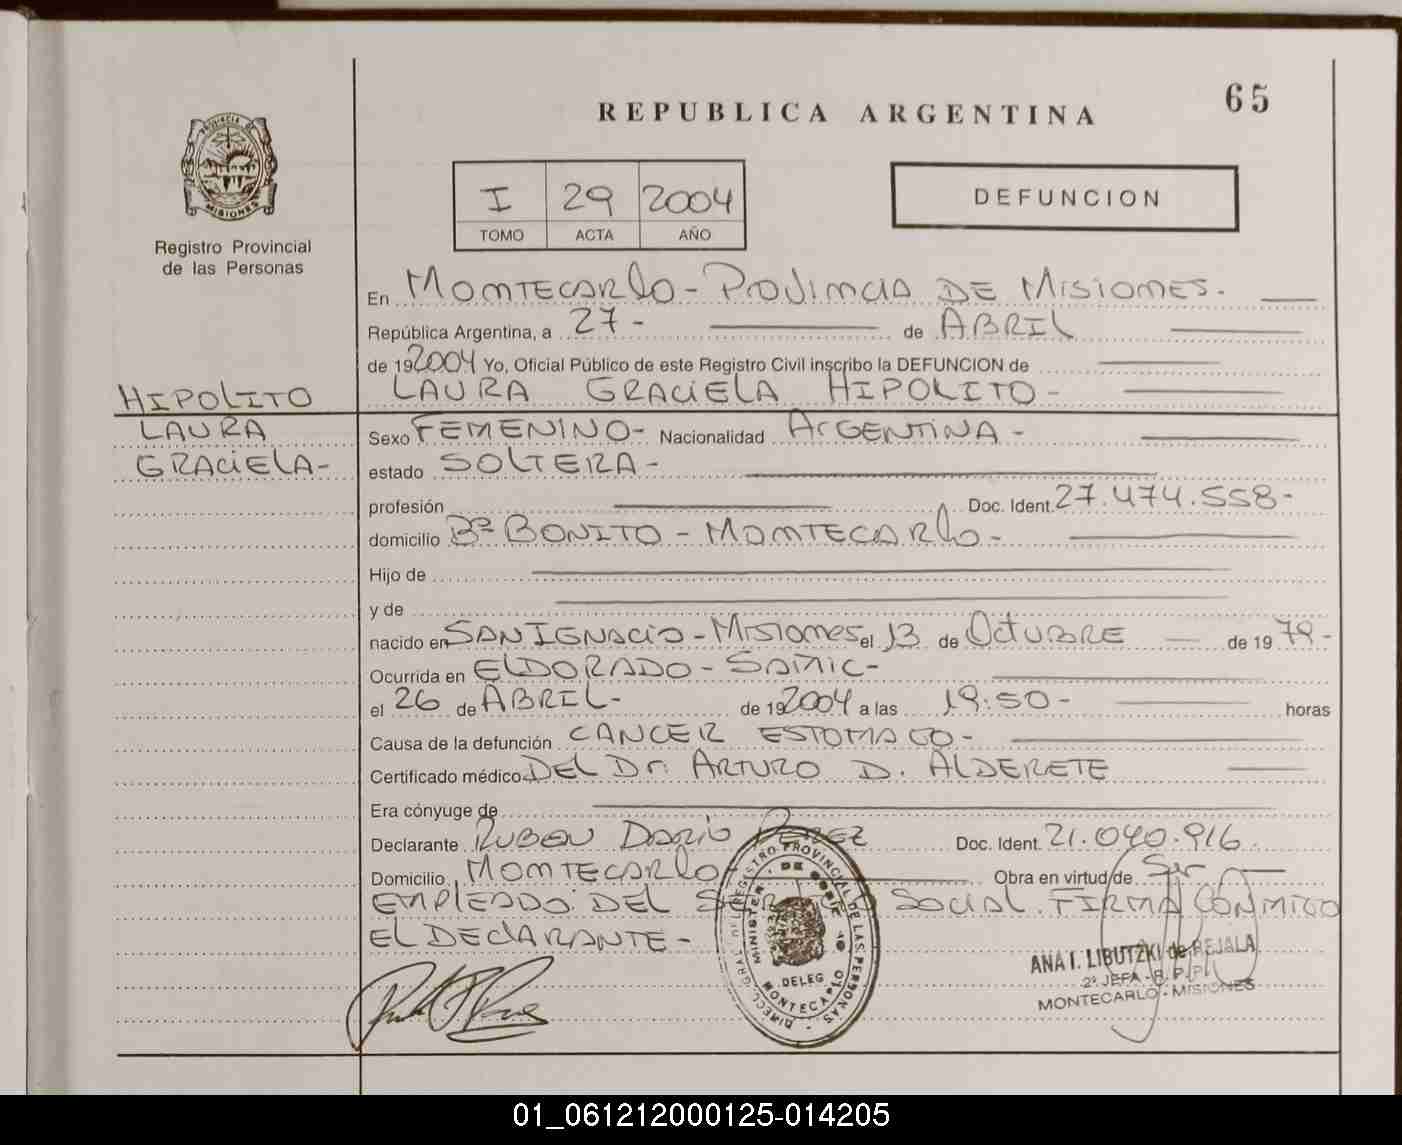 65
REPUBLICA ARGENTINA
PROVINCIA DE
MISIONES
Registro Provincial
de las Personas
I 29 2004
TOMO ACTA AÑO
DEFUNCION
En MONTECARLO - PROVINCIA DE MISIONES.
República Argentina, a 27- de ABRIL
de 192004 Yo, Oficial Público de este Registro Civil inscribo la DEFUNCION de
HIPOLITO
LAURA GRACIELA HIPOLITO-
LAURA
GRACIELA-
Sexo FEMENINO- Nacionalidad ARGENTINA-
estado SOLTERA-
profesión Doc. Ident. 27.474.558-
domicilio Bº BONITO - MONTECARLO-
Hijo de
y de
nacido en SAN IGNACIO - MISIONES el 13 de OCTUBRE de 1979-
Ocurrida en ELDORADO - SAMIC-
el 26 de ABRIL- de 192004 a las 19:50- horas
Causa de la defunción CANCER ESTOMAGO-
Certificado médico DEL Dr. ARTURO D. ALDERETE
Era cónyuge de
Declarante RUBEN DARIO PEREZ Doc. Ident. 21.040.916.
Domicilio MONTECARLO Obra en virtud de Ser
EMPLEADO DEL SOCIAL. FIRMA CONMIGO
EL DECLARANTE-
DELEG
MONTECARLO
ANA I. LIBUTZKI de REJALA
2ª JEFA - R. P. P.
MONTECARLO - MISIONES
01_061212000125-014205